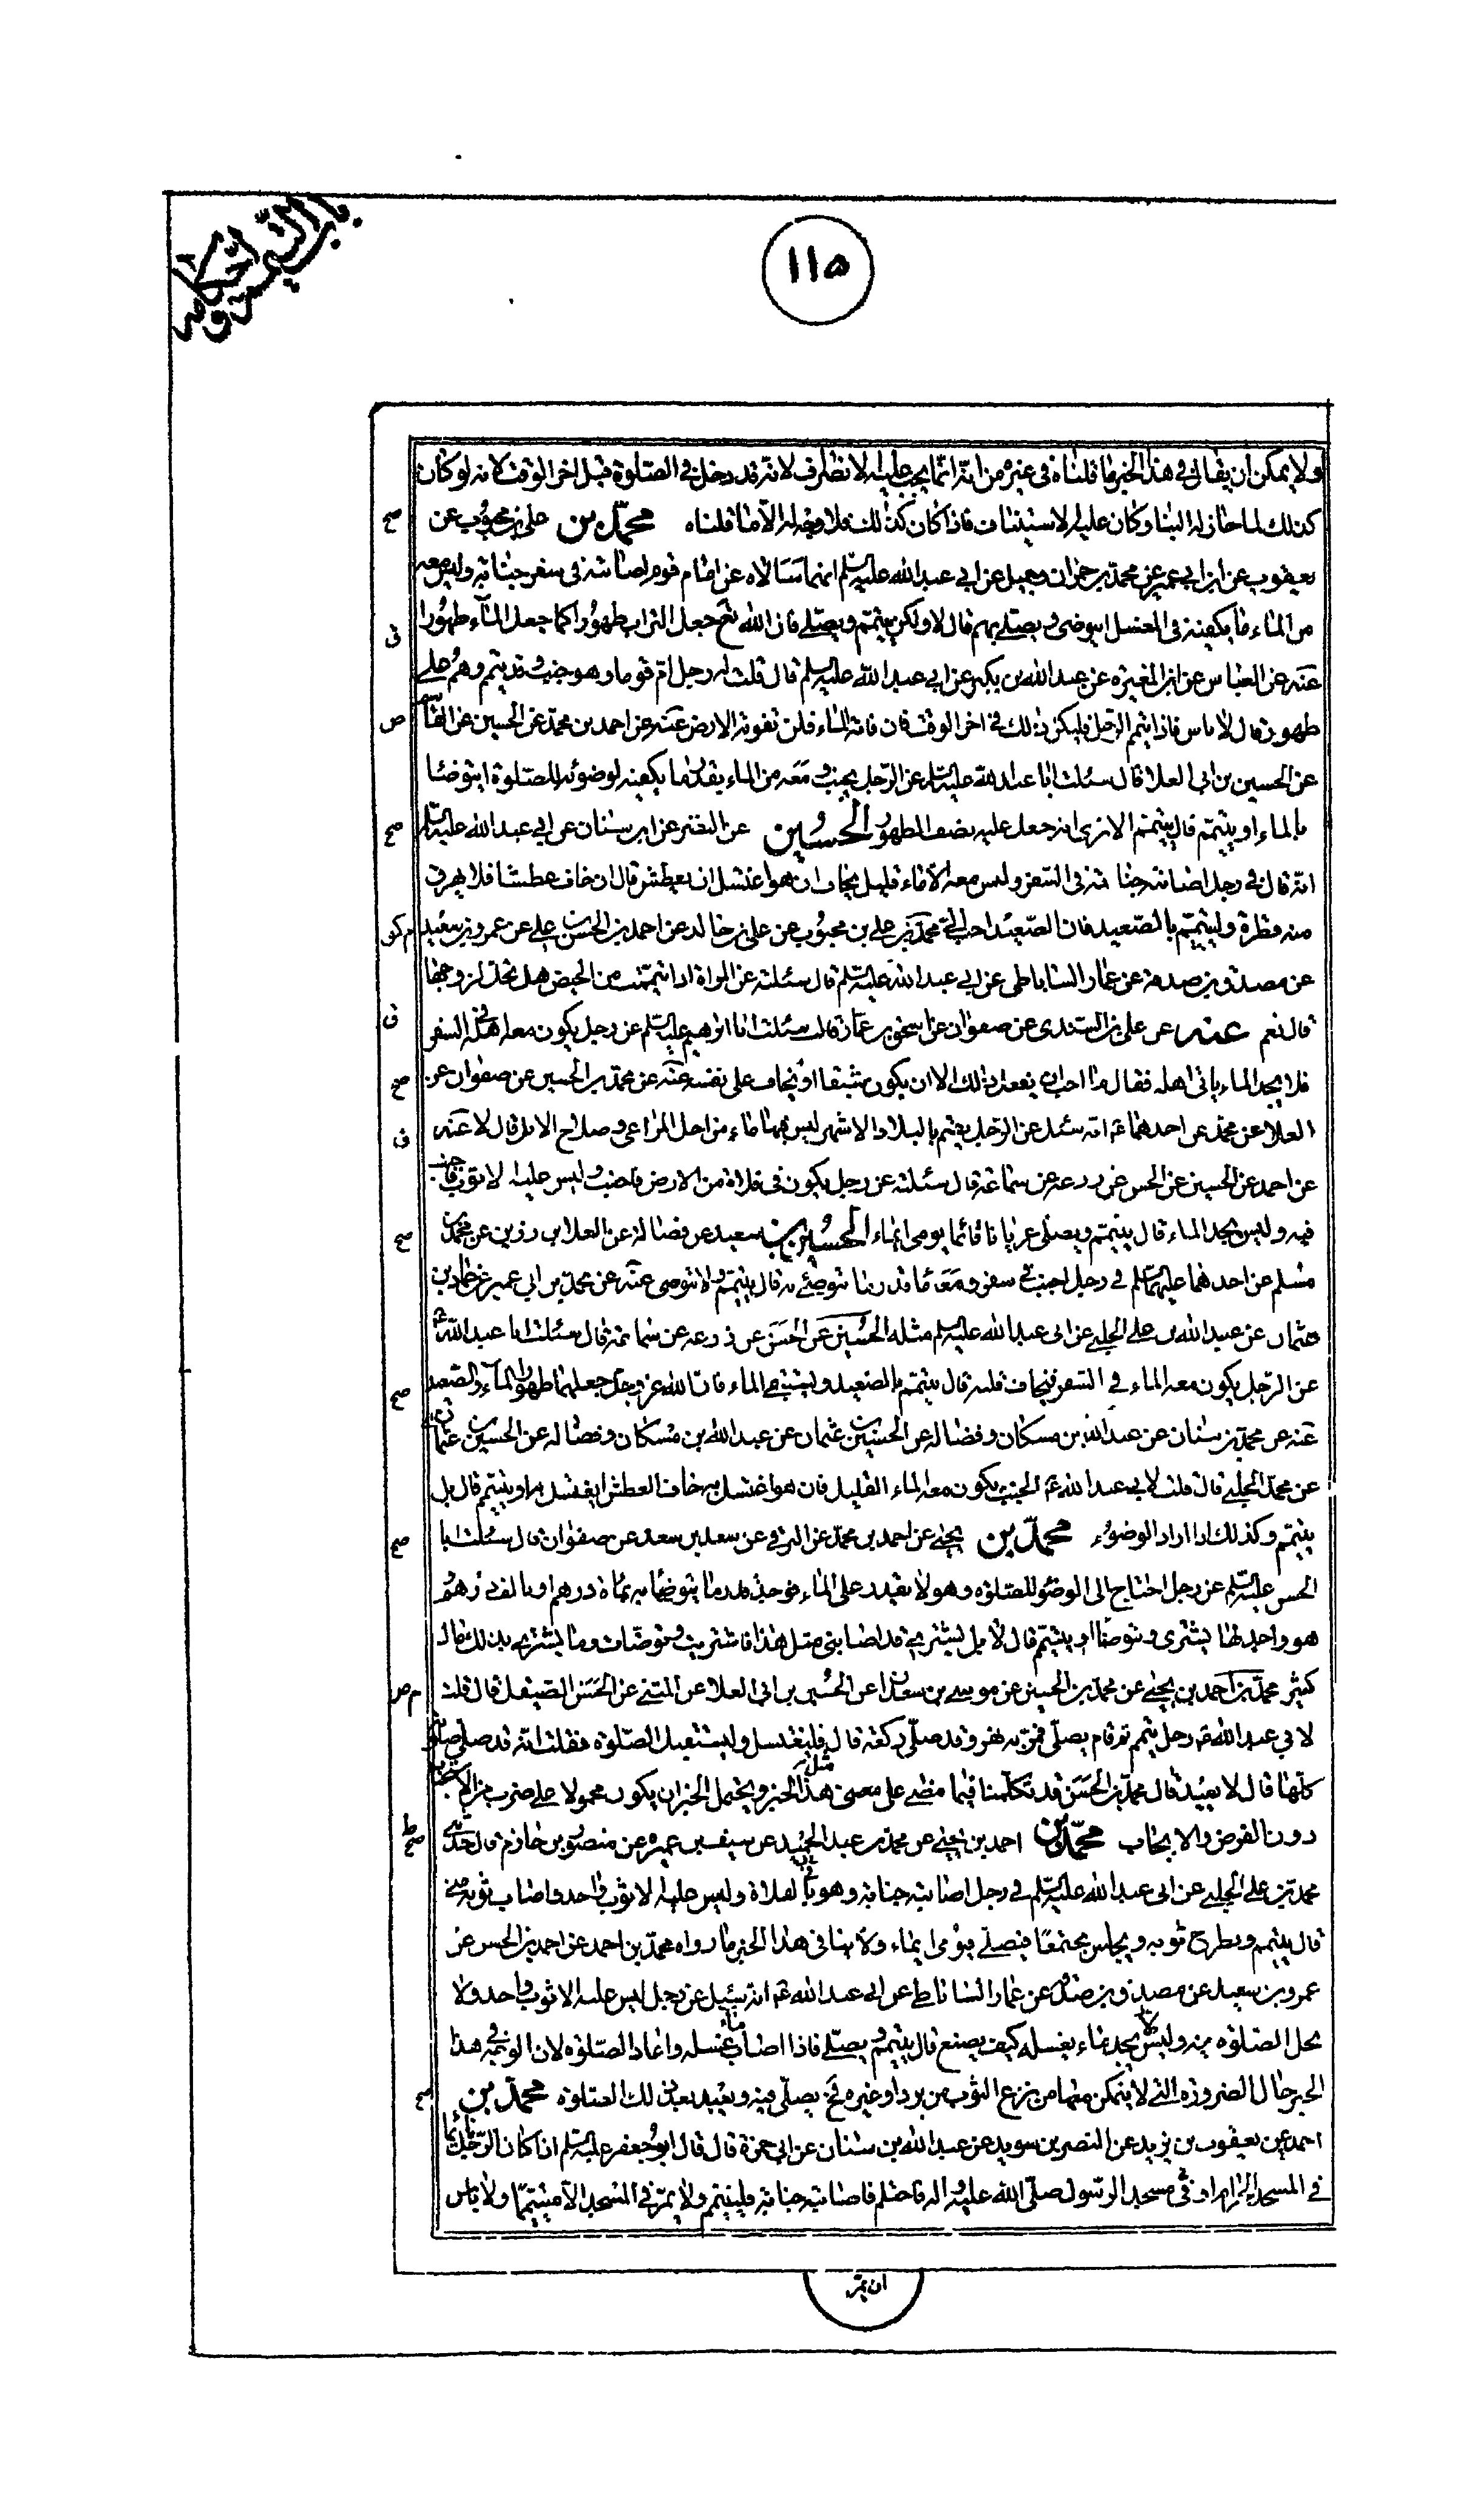 باب التيمم واحكامه
١١٥
ولا يمكن ان يقال في هذا الخبر ما قلناه في غيره من انه انما يجب عليه الانصراف لانه قد دخل في الصلوة قبل اخر الوقت لانه لو كان
كذلك لما جاز له البناء وكان عليه الاستيناف فاذا كان كذلك فلا وجه له الا ما قلناه محمد بن علي بن محبوب عن
صح
يعقوب عن ابن ابي عمير عن محمد بن حمران وجميل عن ابي عبد الله عليه السلم انهما سالاه عن امام قوم اصابته في سفر جنابة وليس معه
من الماء ما يكفيه في الغسل ايتوضى ويصلي بهم قال لا ولكن يتيمم ويصلي فان الله تع جعل التراب طهورا كما جعل الماء طهورا
ق
عنه عن العباس عن ابن المغيرة عن عبد الله بن بكير عن ابي عبد الله عليه السلم قال قلت له رجل ام قوما وهو جنب وقد تيمم وهم على
طهور قال لا باس فاذا تيمم الرجل فليكن ذلك في اخر الوقت فان فاته الماء فلن تفوته الارض عنه عن احمد بن محمد عن الحسين عن القاسم
ص
عن الحسين بن ابي العلا قال سئلت ابا عبد الله عليه السلم عن الرجل يجنب ومعه من الماء بقدر ما يكفيه لوضوئه للصلوة ايتوضا
بالماء او يتيمم قال يتيمم الا ترى انه جعل عليه نصف الطهور الحسين عن النضر عن ابن سنان عن ابي عبد الله عليه السلم
صح
انه قال في رجل اصابته جنابة في السفر وليس معه الا ماء قليل يخاف ان هو اغتسل ان يعطش قال ان خاف عطشا فلا يهرق
منه قطرة وليتيمم بالصعيد فان الصعيد احب الي محمد بن علي بن محبوب عن علي بن خالد عن احمد بن الحسن بن علي عن عمرو بن سعيد
م كو
عن مصدق بن صدقة عن عمار الساباطي عن ابي عبد الله عليه السلم قال سئلته عن المراة اذا تيممت من الحيض هل تحل لزوجها
قال نعم عنه عن علي بن السندي عن صفوان عن اسحق بن عمار قال سئلت ابا ابراهيم عليه السلم عن رجل يكون معه اهله في السفر
ق
فلا يجد الماء ياتي اهله فقال ما احب ان يفعل ذلك الا ان يكون شبقا او يخاف على نفسه عنه عن محمد بن الحسين عن صفوان عن
صح
العلا عن محمد عن احدهما ع انه سئل عن الرجل يقيم بالبلاد الاشهر ليس فيها ماء من اجل المراعي وصلاح الابل قال لا عنه
ق
عن احمد عن الحسين عن الحسن عن زرعه عن سماعة قال سئلته عن رجل يكون في فلاة من الارض فاجنب وليس عليه الا ثوب فاجنب
فيه وليس يجد الماء قال يتيمم ويصلي عريانا قائما يومي ايماء الحسين بن سعيد عن فضالة عن العلا بن رزين عن محمد بن
صح
مسلم عن احدهما عليهما السلم في رجل اجنب في سفر ومعه ماء قدر ما يتوضئ به قال يتيمم ولا يتوضى عنه عن محمد بن ابي عمير عن حماد بن
عثمان عن عبيد الله بن علي الحلبي عن ابي عبد الله عليه السلم مثله الحسين عن الحسن عن زرعه عن سماعة قال سئلت ابا عبد الله ع
عن الرجل يكون معه الماء في السفر فيخاف قلته قال يتيمم بالصعيد ويستبقي الماء فان الله عز وجل جعلهما طهورا الماء والصعيد
صح
عنه عن محمد بن سنان عن عبد الله بن مسكان وفضالة عن الحسين بن عثمان عن عبد الله بن مسكان وفضالة عن الحسين بن عثمان
عن محمد الحلبي قال قلت لابي عبد الله ع الجنب يكون معه الماء القليل فان هو اغتسل به خاف العطش ايغتسل به او يتيمم قال بل
يتيمم وكذلك اذا اراد الوضوء محمد بن يحيى عن احمد بن محمد عن البرقي عن سعد بن سعد عن صفوان قال سئلت ابا
صح
الحسن عليه السلم عن رجل احتاج الى الوضوء للصلوة وهو لا يقدر على الماء فوجد قدر ما يتوضا به بمائة درهم او بالف درهم
هو واجد لها يشتري ويتوضا او يتيمم قال لا بل يشتري قد اصابني مثل هذا فاشتريت وتوضات وما يشتري بذلك مال
كثير محمد بن احمد بن يحيى عن محمد بن الحسين عن موسى بن سعدان عن الحسين بن ابي العلا عن المثنى عن الحسن الصيقل قال قلت
م ص
لابي عبد الله ع رجل تيمم ثم قام يصلي فمر به نهر وقد صلى ركعة قال فليغتسل وليستقبل الصلوة فقلت انه قد صلى صلوته
كلها قال لا يعيد قال محمد بن الحسن قد تكلمنا فيما مضى على معنى مثل هذا الخبر ويحتمل الخبر ان يكون محمولا على ضرب من الاستحباب
دون الفرض والايجاب محمد بن احمد بن يحيى عن محمد بن عبد الحميد عن سيف بن عميره عن منصور بن حازم قال حدثني
صح
محمد بن علي الحلبي عن ابي عبد الله عليه السلم في رجل اصابته جنابة وهو بالفلاة وليس عليه الا ثوب واحد واصاب ثوبه مني
قال يتيمم ويطرح ثوبه ويجلس مجتمعا فيصلي يومي ايماء ولا ينافي هذا الخبر ما رواه محمد بن احمد عن احمد بن الحسن عن
عمرو بن سعيد عن مصدق بن صدقة عن عمار الساباطي عن ابي عبد الله ع انه سئل عن رجل ليس عليه الا ثوب واحد ولا
يحل الصلوة فيه وليس يجد ماء يغسله كيف يصنع قال يتيمم ويصلي فاذا اصاب ماء غسله واعاد الصلوة لان الوجه في هذا
الخبر حال الضرورة التي لا يتمكن معها من نزع الثوب من برد او غيره فح يصلي فيه ويعيد بعد ذلك الصلوة محمد بن
صح
احمد عن يعقوب بن يزيد عن النضر بن سويد عن عبد الله بن سنان عن ابي حمزة قال قال ابو جعفر عليه السلم اذا كان الرجل نائما
في المسجد الحرام او في مسجد الرسول صلى الله عليه واله فاحتلم فاصابته جنابة فليتيمم ولا يمر في المسجد الا متيمما ولا باس
ان يمر